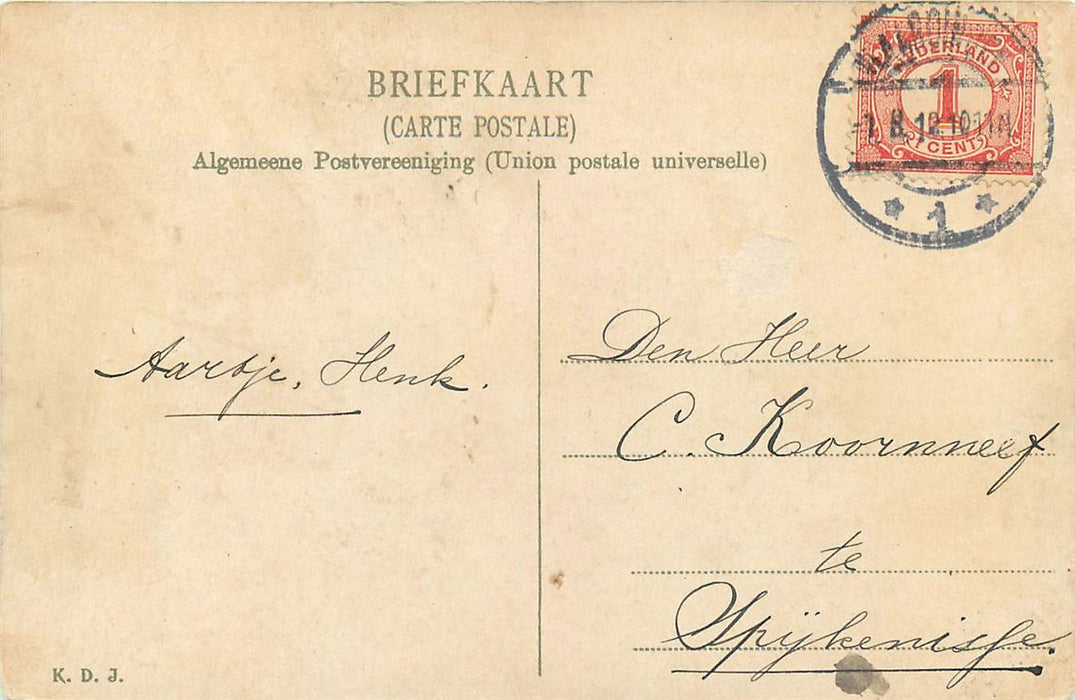 BRIEFKAART
(CARTE POSTALE)
Algemeene Postvereeniging (Union postale universelle)
NEDERLAND
1
1 CENT
8.12.10
1
Aartje, Henk.
Den Heer
C. Koornneef
te
Spijkenisse.
K. D. J.